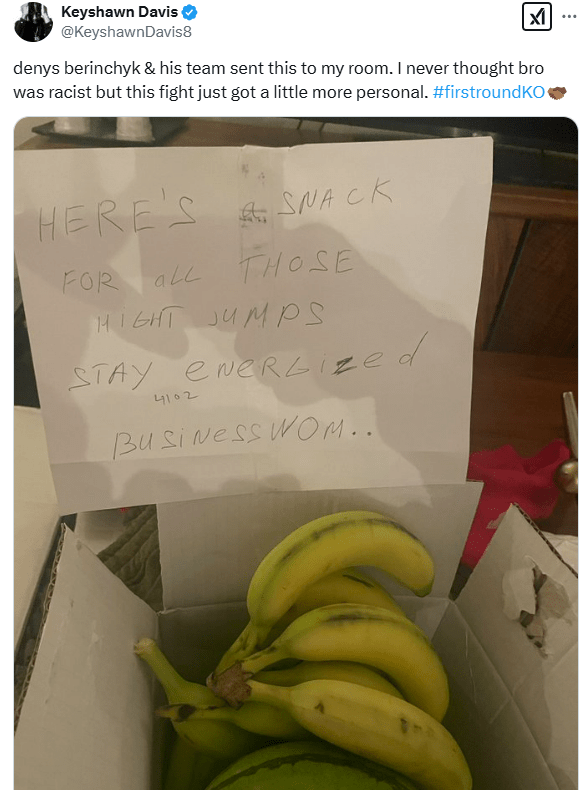 Keyshawn Davis
@KeyshawnDavis8
denys berinchyk & his team sent this to my room. I never thought bro
was racist but this fight just got a little more personal. #firstroundKO
HERE'S a SNACK
FOR aLL THOSE
HIGHT JUMPS
STAY eNeRGized
4102
BUSiNeSSWOM..